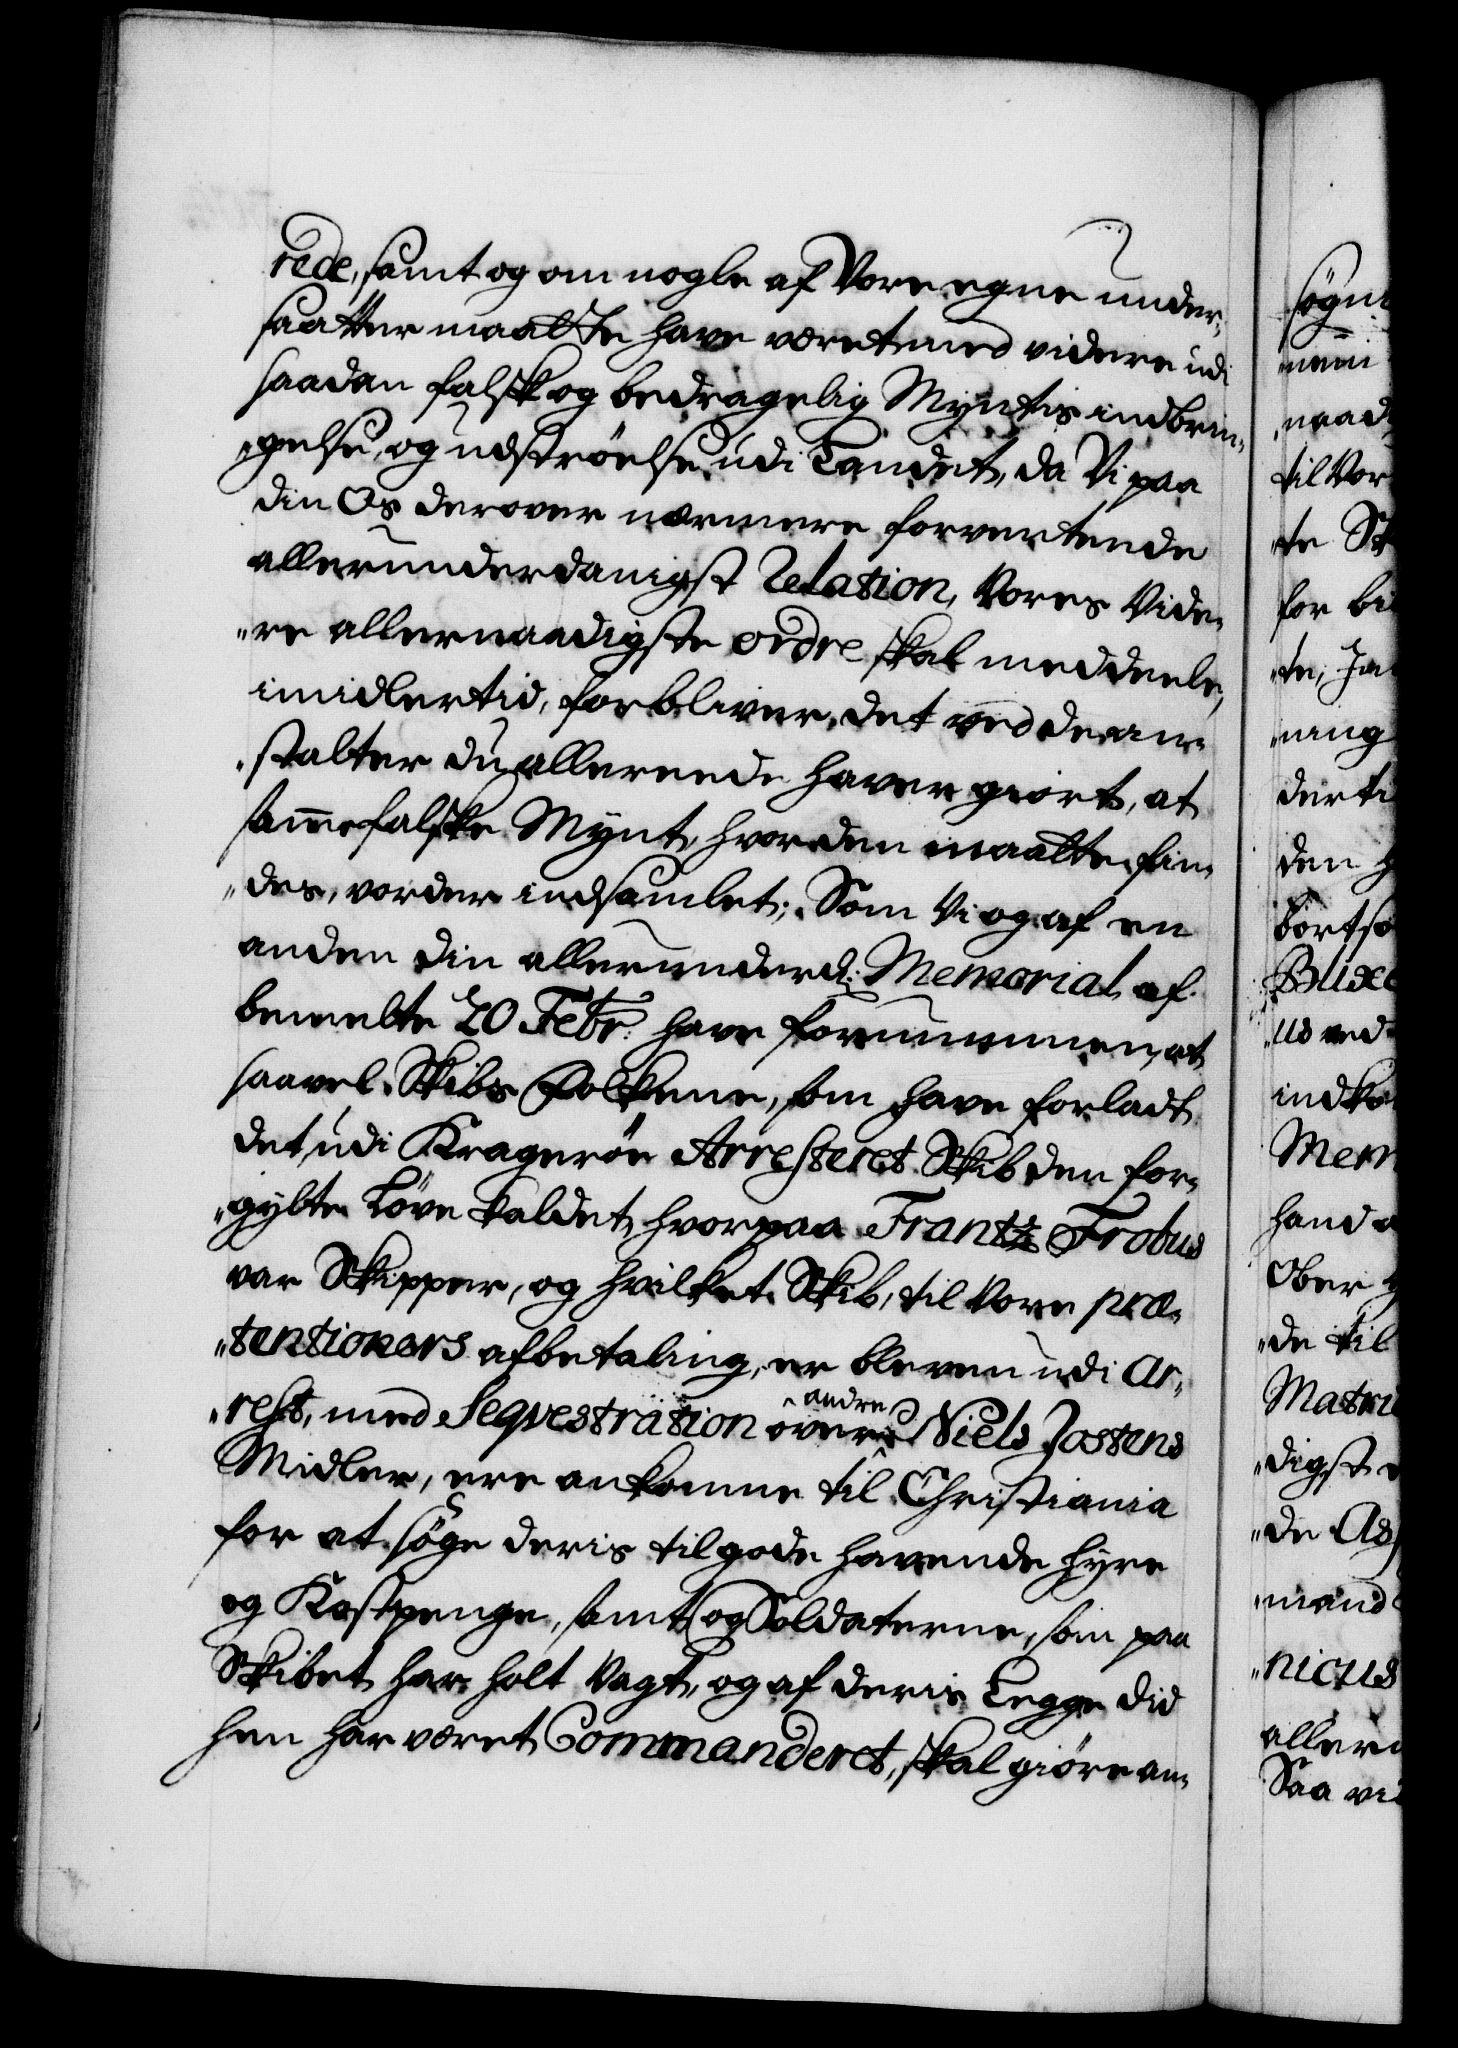 rede, samt og om nogle af Vore egne under¬
saatter maatte have været med videre udi
saadan falsk og bedragelig Myntis indbrin¬
„gelse, og udströelse udi Landet, da Vi paa
din Os derover nærmere forventende
allerunderdanigst Relation, Vores Vide¬
„re allernaadigste ordre skal meddeele,
imidlertid, forbliver det ved de an¬
„stalter du allereede haver giort, at
samme falske Mynt, hvor den maatte fin¬
„des, vorder indsamlet; Som Vi og af en
anden din allerunderd: Memorial af
bemelte 20 Febr: have fornummen, at
saavel Skibs Folkene, som have forladt
det udi Kragerøe Arresteret Skib den for¬
„gylte Löve kaldet, hvorpaa Frantz Frobus
var Skipper, og hvilket Skib, til Vore præ¬
„tentioners afbetaling, er bleven udi Ar¬
„rest, med Seqvestration over andre Niels Jostens
Midler, ere ankomne til Christiania
for at söge deris tilgode havende Hyre
og Kostpenge, samt og Soldaterne, som paa
Skibet har holt Vagt, og af deris Legge did
hen har været Commanderet, skal giöre an¬
sögni
naad
til Vor
te Sk
for be
den
bortso
Mem
hand
Ober
„de til
Matri
„digst
„de As
„mand
„nicus
allern
Saa vi